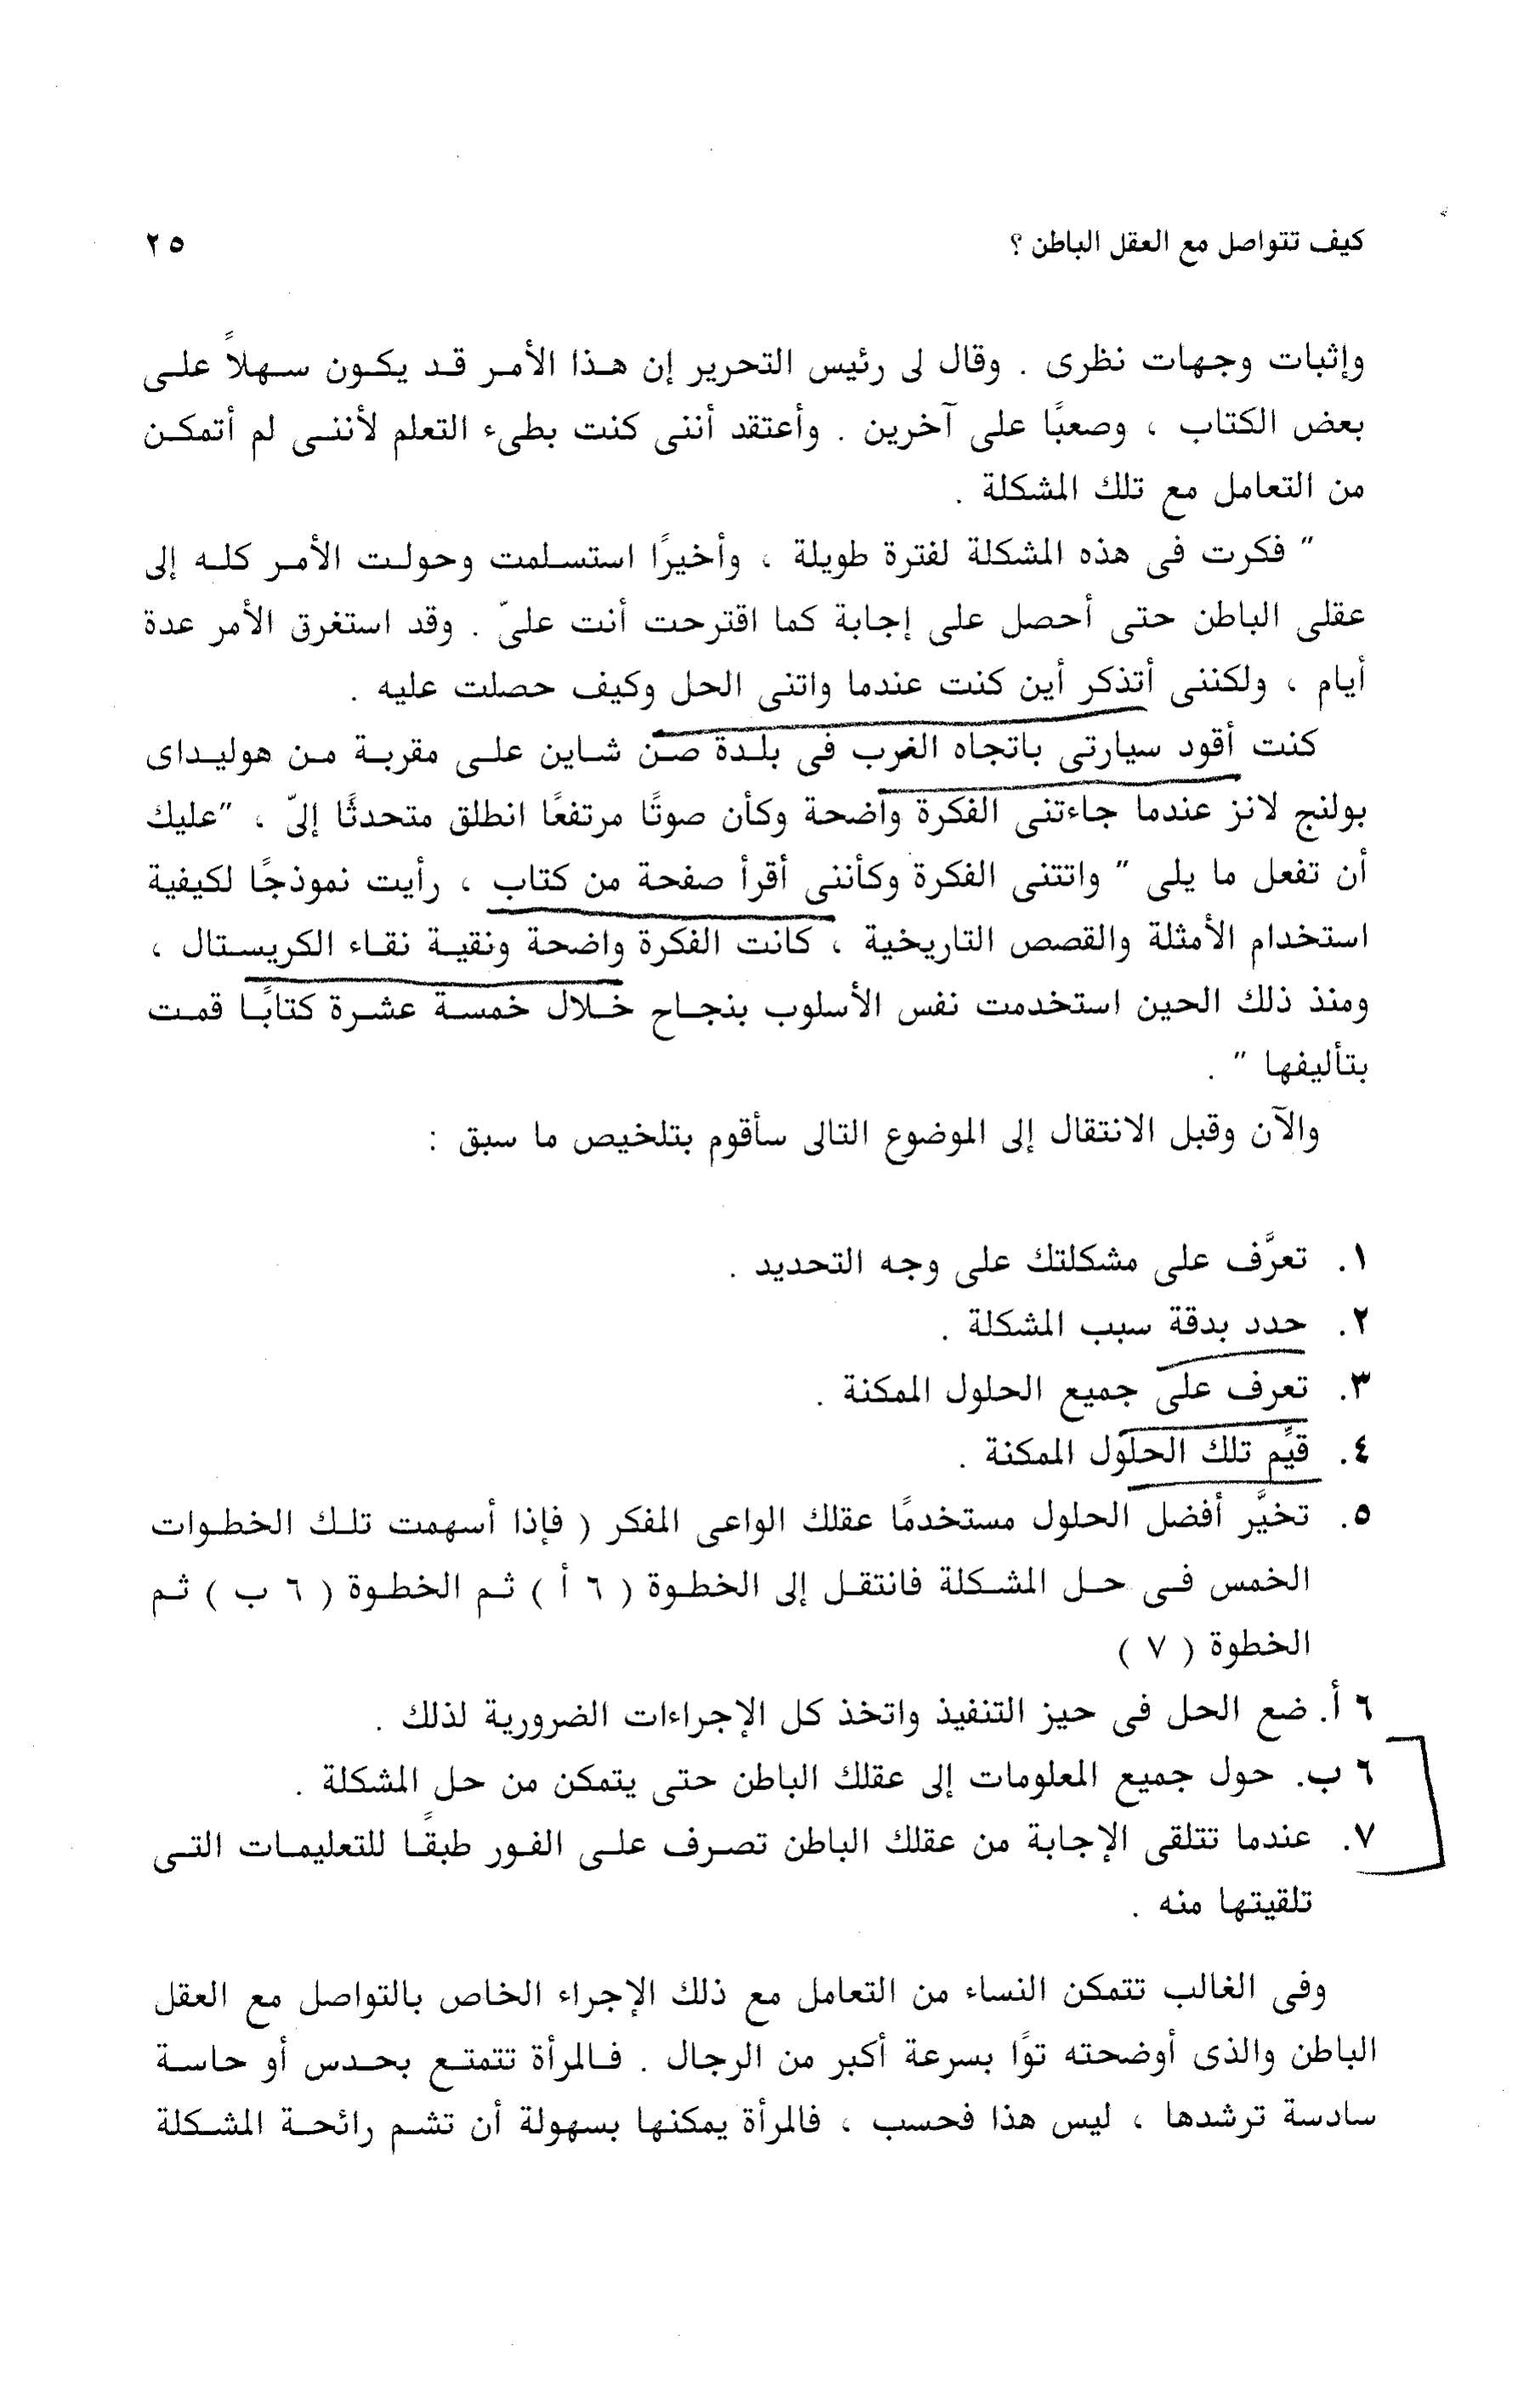 كيف تتواصل مع العقل الباطن ؟ ٢٥
وإثبات وجهات نظرى . وقال لى رئيس التحرير إن هذا الأمر قد يكون سهلاً على
بعض الكتاب ، وصعبًا على آخرين . وأعتقد أننى كنت بطىء التعلم لأننى لم أتمكن
من التعامل مع تلك المشكلة .
" فكرت فى هذه المشكلة لفترة طويلة ، وأخيرًا استسلمت وحولت الأمر كله إلى
عقلى الباطن حتى أحصل على إجابة كما اقترحت أنت علىّ . وقد استغرق الأمر عدة
أيام ، ولكننى أتذكر أين كنت عندما واتنى الحل وكيف حصلت عليه .
كنت أقود سيارتى باتجاه الغرب فى بلدة صن شاين على مقربة من هوليداى
بولنج لانز عندما جاءتنى الفكرة واضحة وكأن صوتًا مرتفعًا انطلق متحدثًا إلىّ ، "عليك
أن تفعل ما يلى " واتتنى الفكرة وكأننى أقرأ صفحة من كتاب ، رأيت نموذجًا لكيفية
استخدام الأمثلة والقصص التاريخية ، كانت الفكرة واضحة ونقية نقاء الكريستال ،
ومنذ ذلك الحين استخدمت نفس الأسلوب بنجاح خلال خمسة عشرة كتابًا قمت
بتأليفها " .
والآن وقبل الانتقال إلى الموضوع التالى سأقوم بتلخيص ما سبق :
١. تعرَّف على مشكلتك على وجه التحديد .
٢. حدد بدقة سبب المشكلة .
٣. تعرف على جميع الحلول الممكنة .
٤. قيِّم تلك الحلول الممكنة .
٥. تخيَّر أفضل الحلول مستخدمًا عقلك الواعى المفكر ( فإذا أسهمت تلك الخطوات
الخمس فى حل المشكلة فانتقل إلى الخطوة ( ٦ أ ) ثم الخطوة ( ٦ ب ) ثم
الخطوة ( ٧ )
٦ أ. ضع الحل فى حيز التنفيذ واتخذ كل الإجراءات الضرورية لذلك .
٦ ب. حول جميع المعلومات إلى عقلك الباطن حتى يتمكن من حل المشكلة .
٧. عندما تتلقى الإجابة من عقلك الباطن تصرف على الفور طبقًا للتعليمات التى
تلقيتها منه .
وفى الغالب تتمكن النساء من التعامل مع ذلك الإجراء الخاص بالتواصل مع العقل
الباطن والذى أوضحته توًا بسرعة أكبر من الرجال . فالمرأة تتمتع بحدس أو حاسة
سادسة ترشدها ، ليس هذا فحسب ، فالمرأة يمكنها بسهولة أن تشم رائحة المشكلة